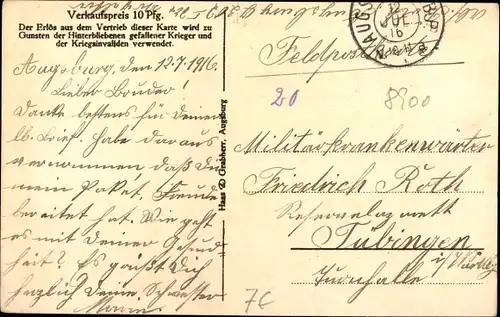 Verkaufspreis 10 Pfg.
Der Erlös aus dem Vertrieb dieser Karte wird zu
Gunsten der Hinterbliebenen gefallener Krieger und
der Kriegsinvaliden verwendet.
Augsburg, den 12.7.1916.
Lieber Bruder!
Danke bestens für deinen
lb. Brief. Habe daraus
vernommen, daß Du
mein Paket, Freude
bereitet hat. Wie geht
es mit deiner Gesund-
heit? Es grüßt Dich
herzlich Deine Schwester
Haas Grabherr, Augsburg
AUGSBURG
12 JUL
16
Feldpost
20
8900
Militärkrankenwärter
Friedrich Roth
Reservelazarett
Tübingen
i/Württbg
Turnhalle
7C